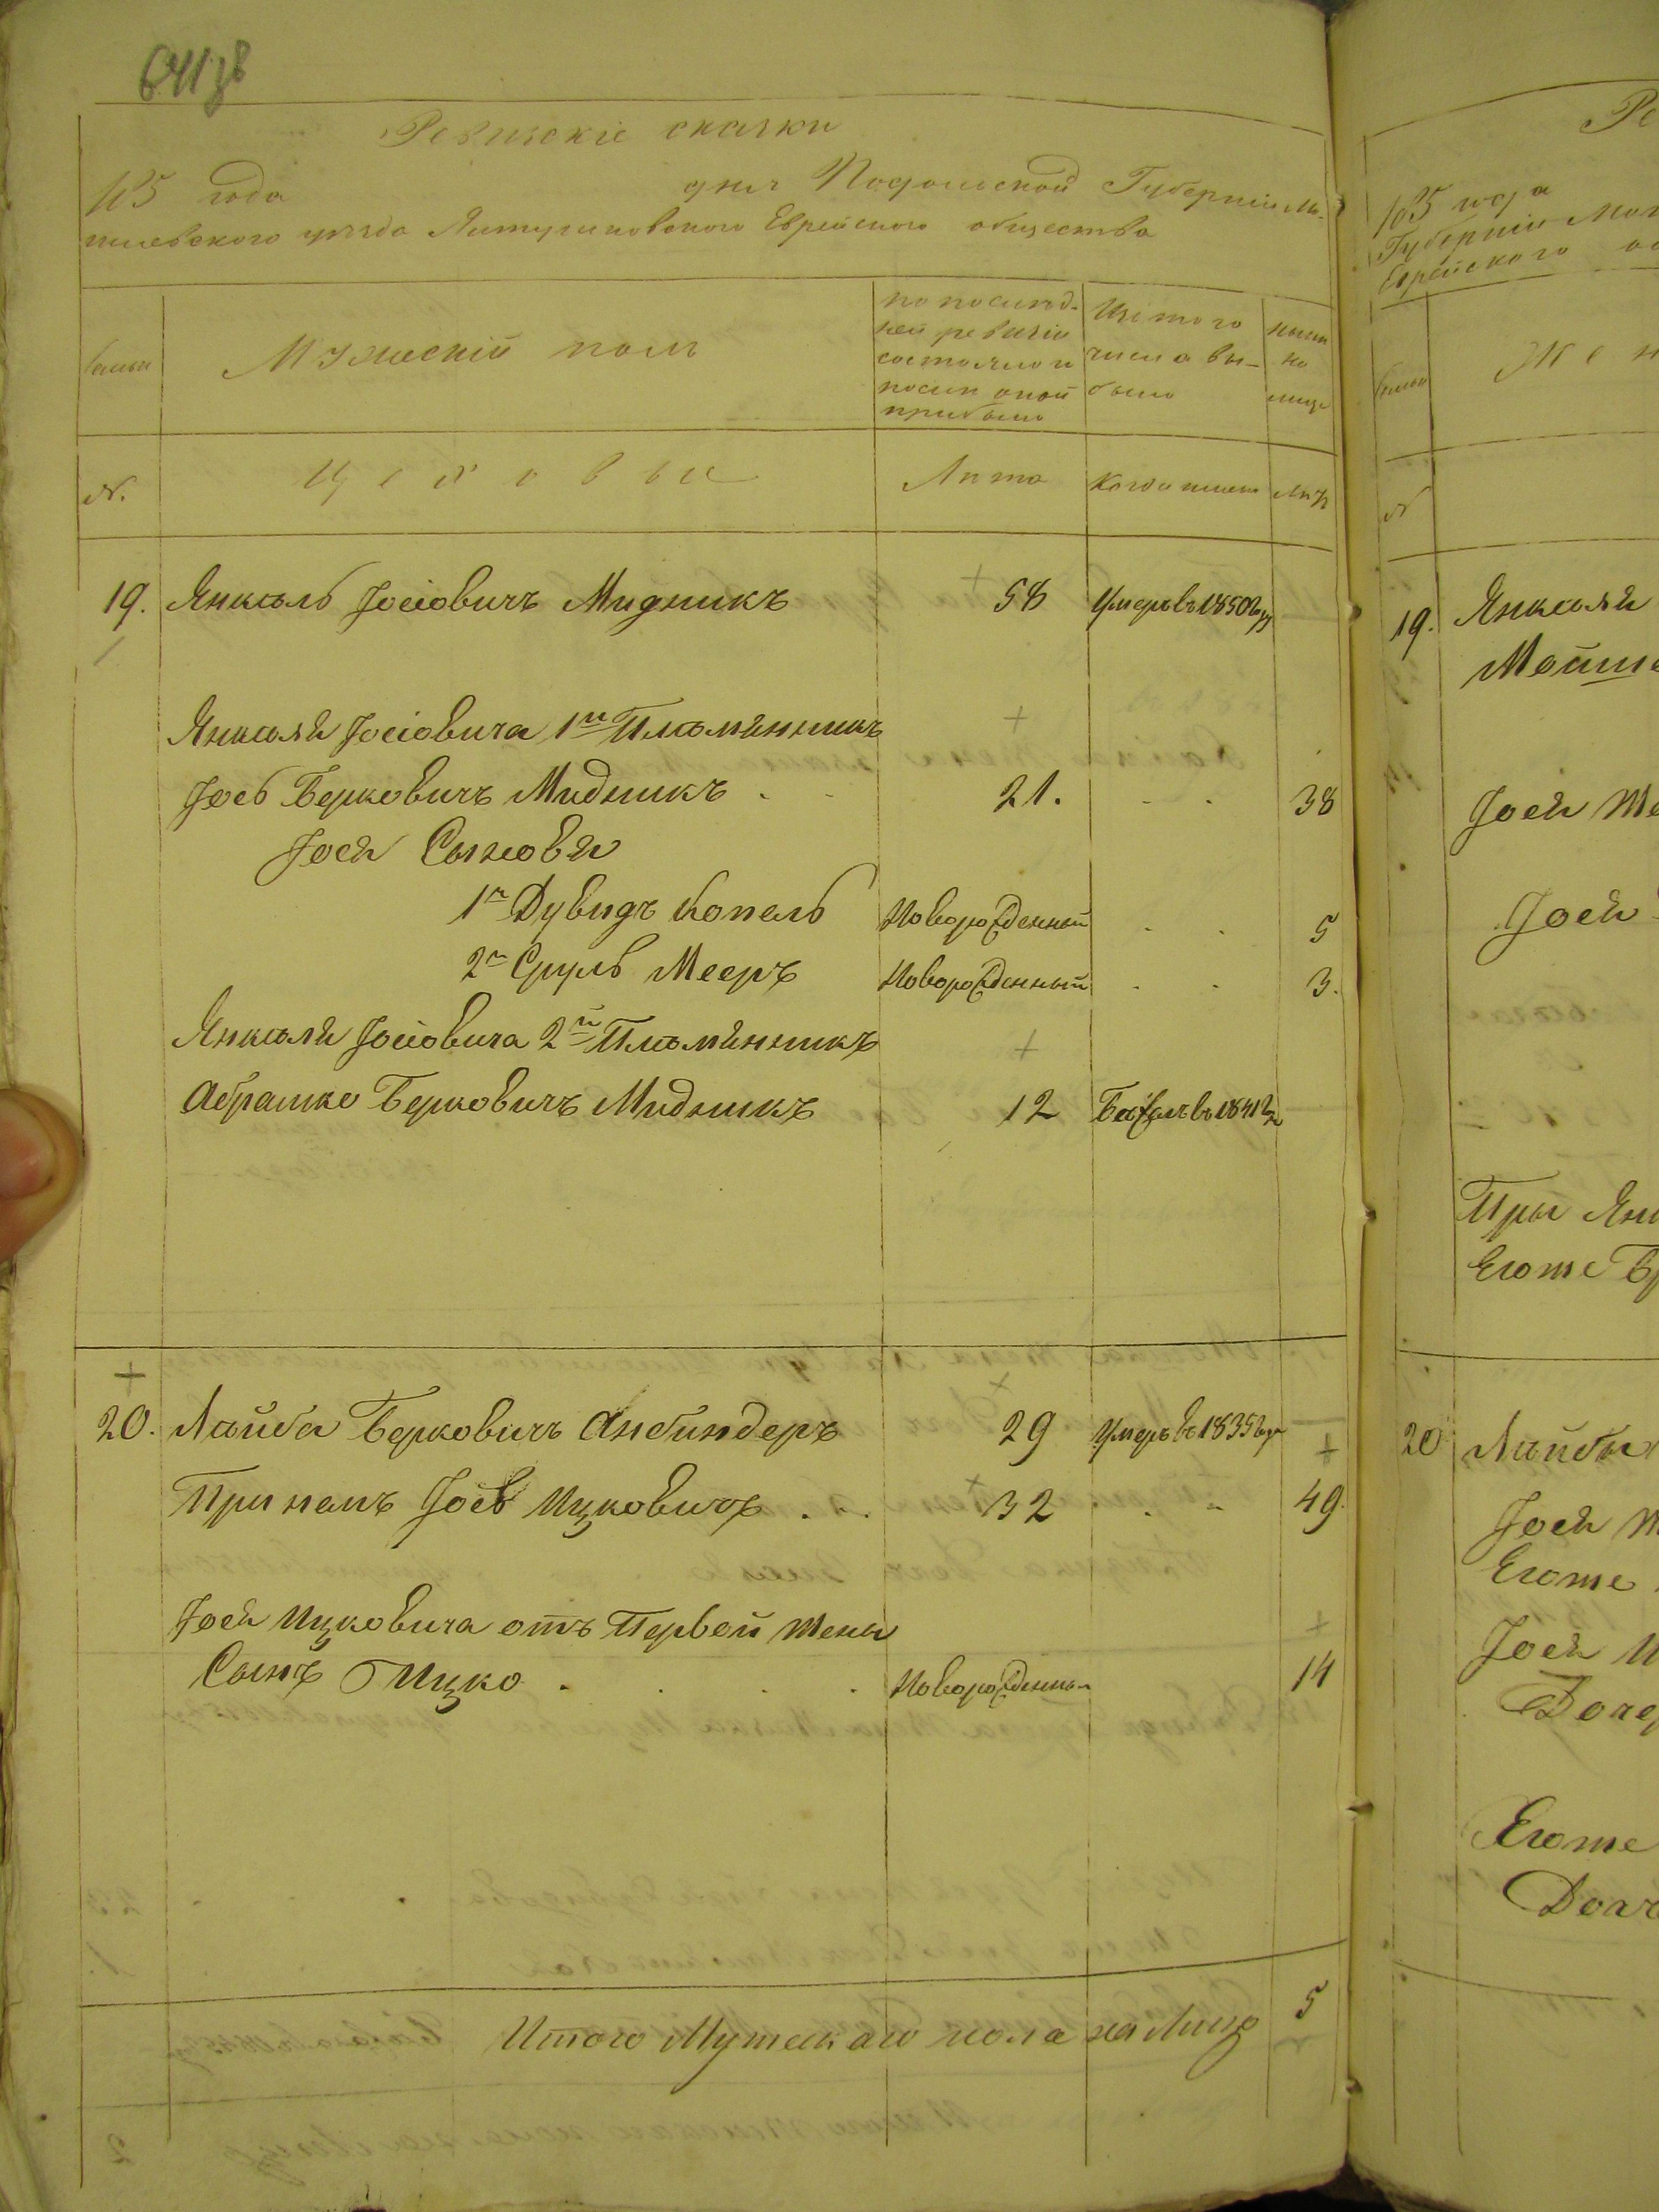 Ревизскіе сказки
185 года дня Подольской Губерніи Мо-
гилевского уезда Ялтушковского Еврейского общества
Семьи
Мужескій полъ
по послед-
ней ревизіи
состояло и
после оной
прибыло
Изъ того
числа вы-
было
ныне
на
лицо
№.
Цеховые
Лета
Когда именно
Летъ
19. Янкель Іосіовичъ Мидникъ 58 Умеръ въ 1850 году
Янкеля Іосіовича 1й Племянникъ
Іось Берковичъ Мидникъ 21. 38
Іося Сыновя
1й Дувидъ Копель Новорожденный 5
2й Сруль Мееръ Новорожденный 3.
Янкеля Іосіовича 2й Племянникъ
Абрамко Берковичъ Мидникъ 12 Бежалъ въ 1841 г
+
20. Лейба Берковичъ Анбиндеръ 29 Умеръ въ 1835 году
Пріиманъ Іось Ицковичъ 32 49.
Іося Ицковича отъ Первой жены
Сынъ Ицко Новорожденный 14
Итого Мужескаго пола на Лицо 5
Ре
185 года
Губерніи Мог
Еврейского об
Семьи
Жен
№
19. Янкеля
Мойше
Іося же
Іося
При Янк
Егоже
20 Лейбы
Іося ж
Егоже
Іося И
Дочер
Егоже
Доч